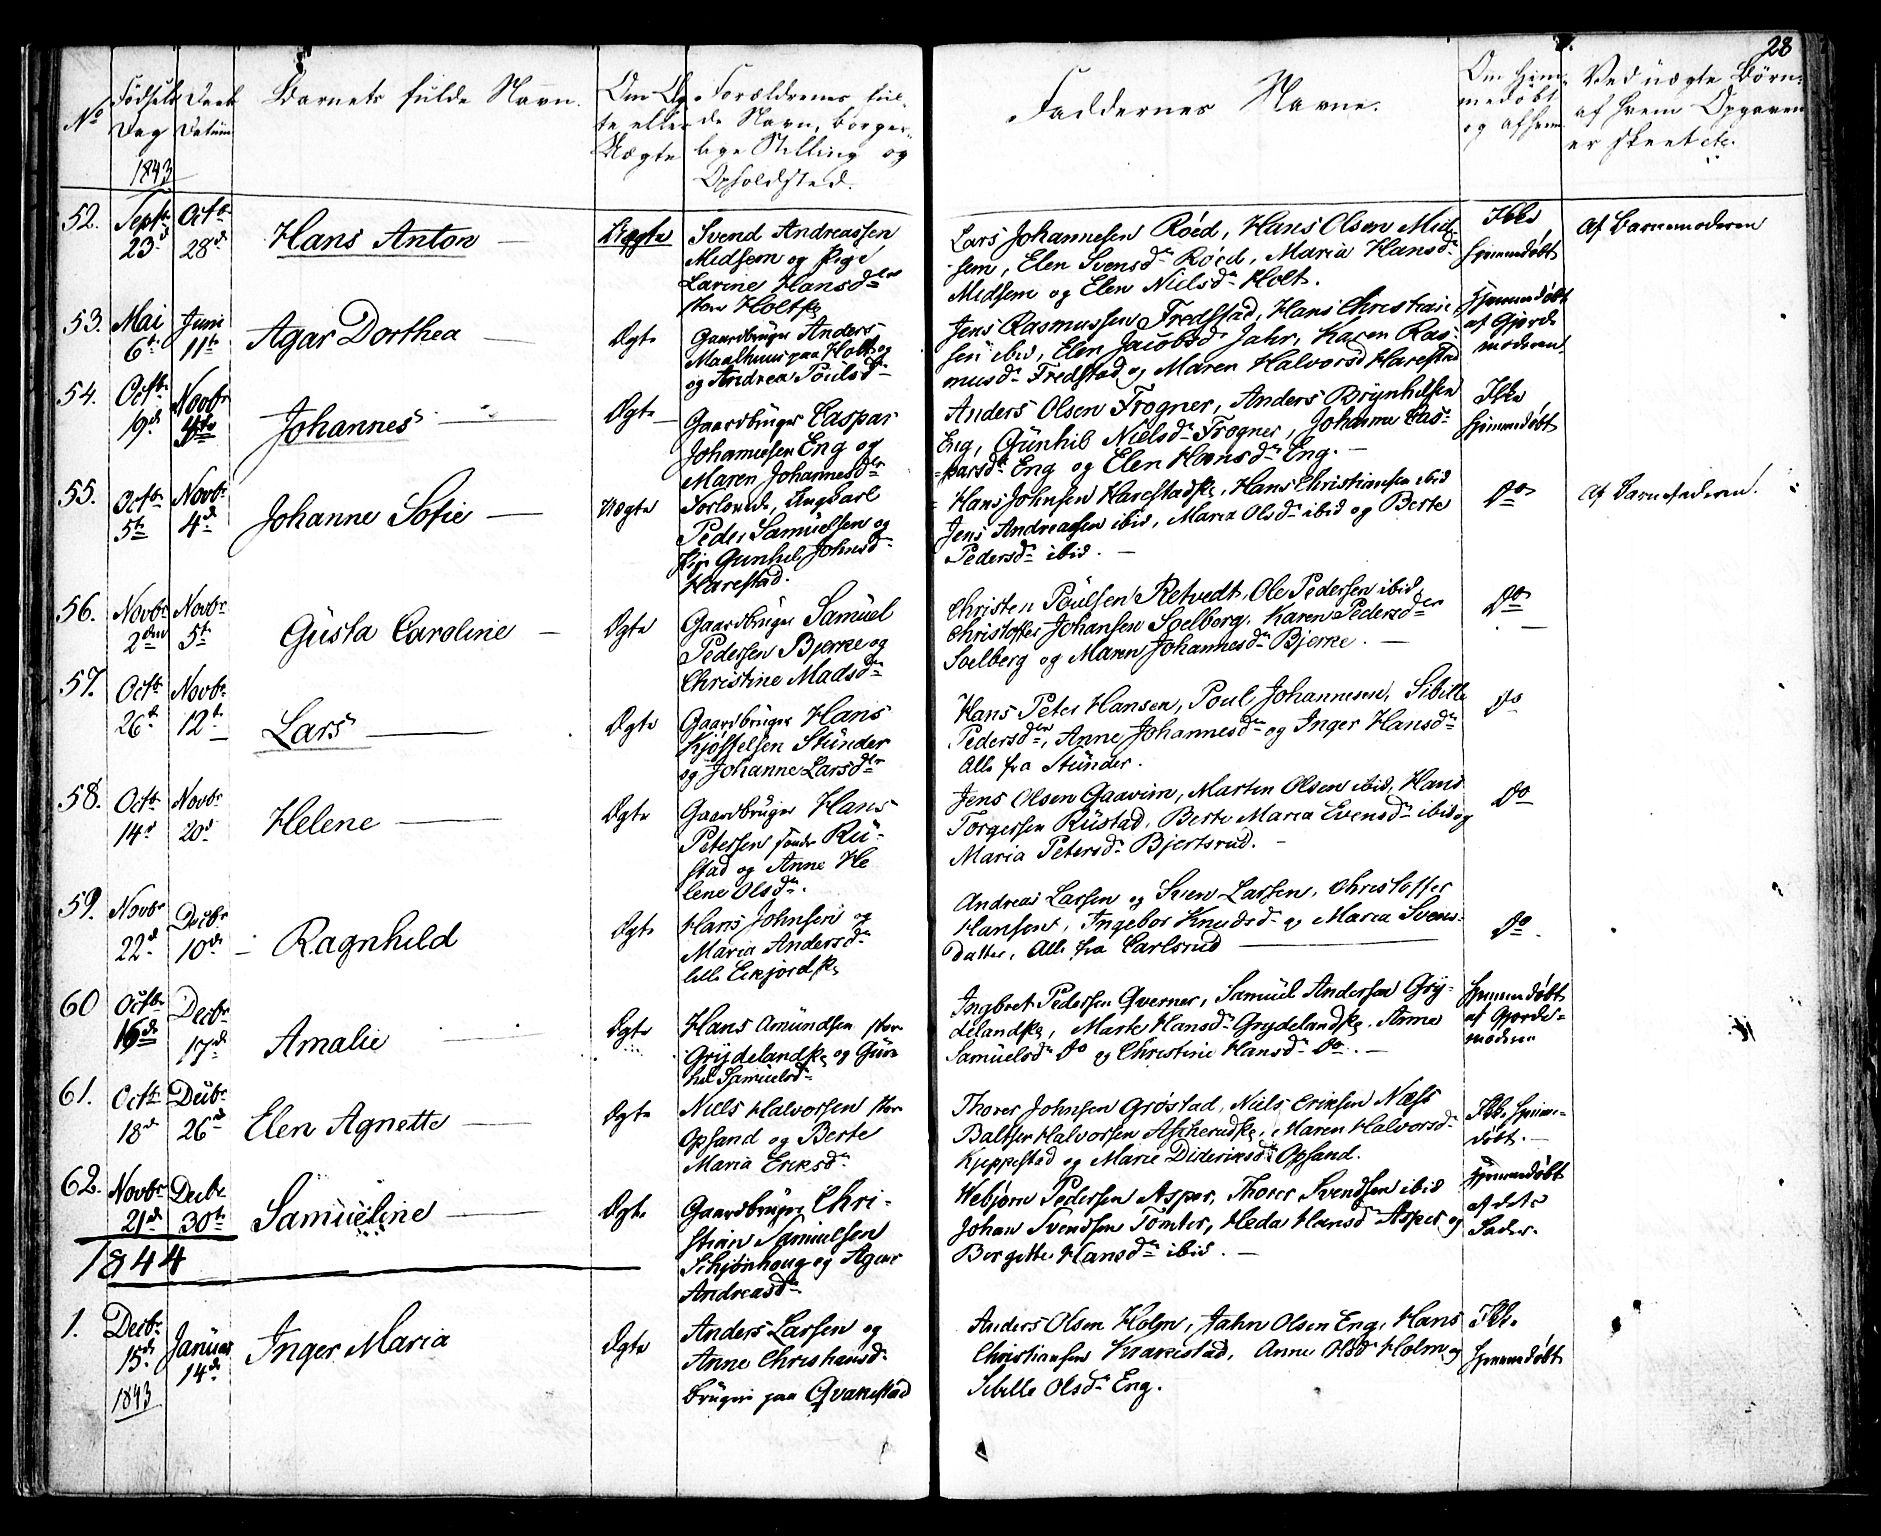 28
No
Fødsels Dag
Daab Datum
Barnets fulde Navn.
Om Ægte eller Uægte
Forældrenes fulde Navn, borgerlige Stilling og Opholdsted.
Faddernes Navne.
Om Hjemmedøbt og af hvem
Ved uægte Børn af hvem Opgaven er skeet etc.
1843
52. Septr 23d Octbr 28d Hans Anton — Uægte
Svend Andreassen
Midsem og Pige
Larine Hansdtr
Holt
Lars Johannesen Røed, Hans Olsen Mid-
sem, Elen Svensdr Røed, Maria Hansdr
Midsem og Elen Nielsdr Holt.
Ikke
hjemmedøbt
Af Barnemoderen
53. Mai 6te Juni 11te Agar Dorthea — Ægte
Gaardbruger Anders
paa Holt
og Andrea Poulsdr
Jens Rasmussen Fredstad, Hans Christian-
sen ibid, Elen Jacobsdr Jahr, Karen Ras-
musdr Fredstad og Maren Halvorsd Harestad
Hjemmedøbt
af Gjorde-
moderen.
54. Octbr 19d Novbr Johannes — Ægte
Gaardbruger Caspar
Johannesen Eng og
Maren Johannesdtr
Anders Olsen Frogner, Anders Brynhilsen
Eng, Gunhil Nielsdr Frogner, Johanne Cas-
parsdr Eng og Elen Hansdr Eng. —
Ikke
hjemmedøbt
55. Octbr 5te Novbr 4d Johanne Sofie — Uægte
Forlovede, Ungkarl
Peder Samuelsen og
Pige Gunhil Johnsdr
Harestad.
Hans Johnsen Harestad, Hans Christiansen ibid
Jens Andreassen ibid, Maria Olsdr ibid og Berte
Pedersdr ibid. —
Do
Af Barnefaderen.
56. Novbr 2den Novbr 5te Gusta Caroline — Ægte
Gaardbruger Samuel
Pedersen Bjerke og
Christine Madsdr
Christen Poulsen Retvedt, Ole Pedersen ibid,
Christoffer Johansen Soelberg, Karen Pedersdtr
Soelberg og Maren Johannesdr Bjerke. —
Do
57. Octbr 26d Novbr 12te Lars — Ægte
Gaardbruger Hans
Kjøstelsen Stunder
og Johanne Larsdtr
Hans Peter Hansen, Poul Johannesen, Sibille
Pedersdtr, Anne Johannesdr og Inger Hansdr
Alle fra Stunder.
Do
58. Octbr 14d Novbr 20d Helene — Ægte
Gaardbruger Hans
Petersen søndr Ru-
stad og Anne He
lene Olsdr.
Jens Olsen Gaavim, Marten Olsen ibid, Hans
Torgersen Rustad, Berte Maria Evensdr ibid og
Maria Petersdr Bjertsrud. —
Do
59. Novbr 22d Decbr 10de — Ragnhild Ægte
Hans Johnsen og
Maria Andersdr
lille Eekjord
Andreas Larsen og Sven Larsen, Christoffer
Hansen, Ingebor Knudsdr og Maria Svens-
datter, Alle fra Carlsrud —
Do
60 Octbr 16de Decbr 17de Amalie — Ægte
Hans Amundsen stor
Grydeland og Gun
hil Samuelsdr
Ingbret Pedersen Qverner, Samuel Andersen Gry-
deland, Marte Hansdr Grydeland, Anne
Samuelsdr Do og Christine Hansdr Do. —
Hjemmedøbt
af Gjorde-
moderen
61. Octbr 18d Decbr 26d Elen Agnette — Ægte
Niels Halvorsen stor
Opsand og Berte
Maria Eriksdr
Thorer Johnsen Grøstad, Niels Eriksen Næss
Baltser Halvorsen Askerud, Maren Halvorsdr
Kjeppestad og Marie Dideriksdr Opsand.
Ikke hjemme-
døbt. —
62. Novbr 21d Decbr 30te Samueline — Ægte
Gaardbruger Chri-
stian Samuelsen
Schjønhoug og Agar
Andreasdr
Hebjørn Pedersen Asper, Thorer Svendsen ibid
Johan Svendsen Tomter, Heda Hansd Asper og
Bergitte Hansdr ibid. —
Hjemmedøbt
af dets
Fader.
1844
1. Decbr 15de 1843 Januar 14de Inger Maria Ægte
Anders Larsen og
Anne Christiansd.
bruger paa Qvakestad
Anders Olsen Holm, Jahn Olsen Eng, Hans
Christiansen Krakestad, Anne Olsdr Holm og
Sibille Olsdr Eng.
Ikke
hjemmedøbt